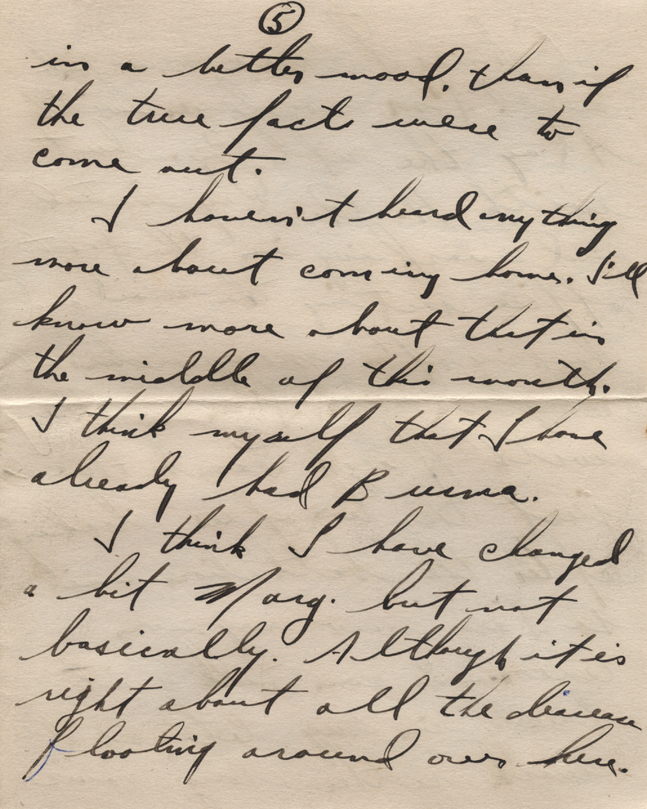 5
in a better mood. than if
the true facts were to
come out.
I haven't heard anything
more about coming home. I'll
know more about that in
the middle of this month.
I think myself that I have
already had Burma.
I think I have changed
a bit Marg. but not
basically. Although it is
right about all the disease
floating around over here.